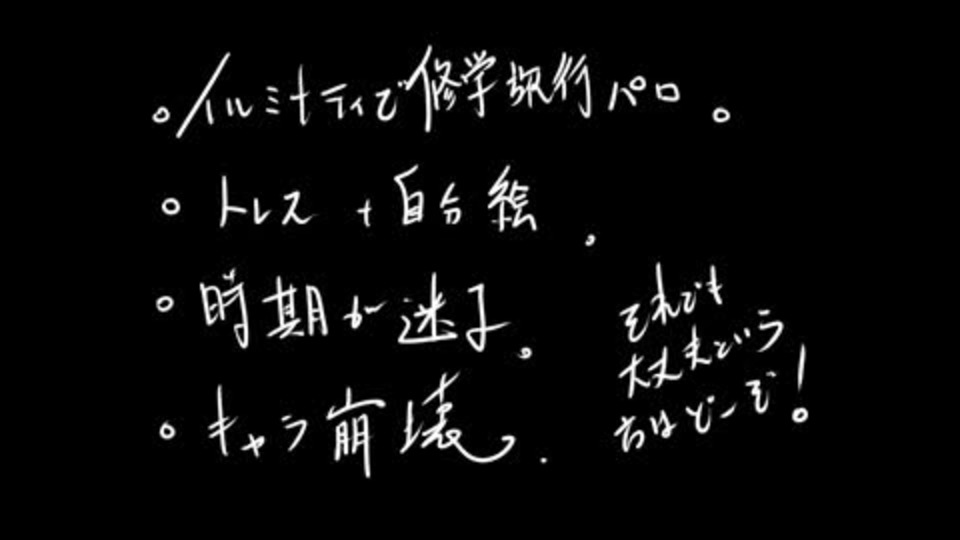 。イルミナティで修学旅行パロ。
。トレス + 自分絵.
。時期が迷子。
。キャラ崩壊.
それでも
大丈夫という
方はどーぞ!